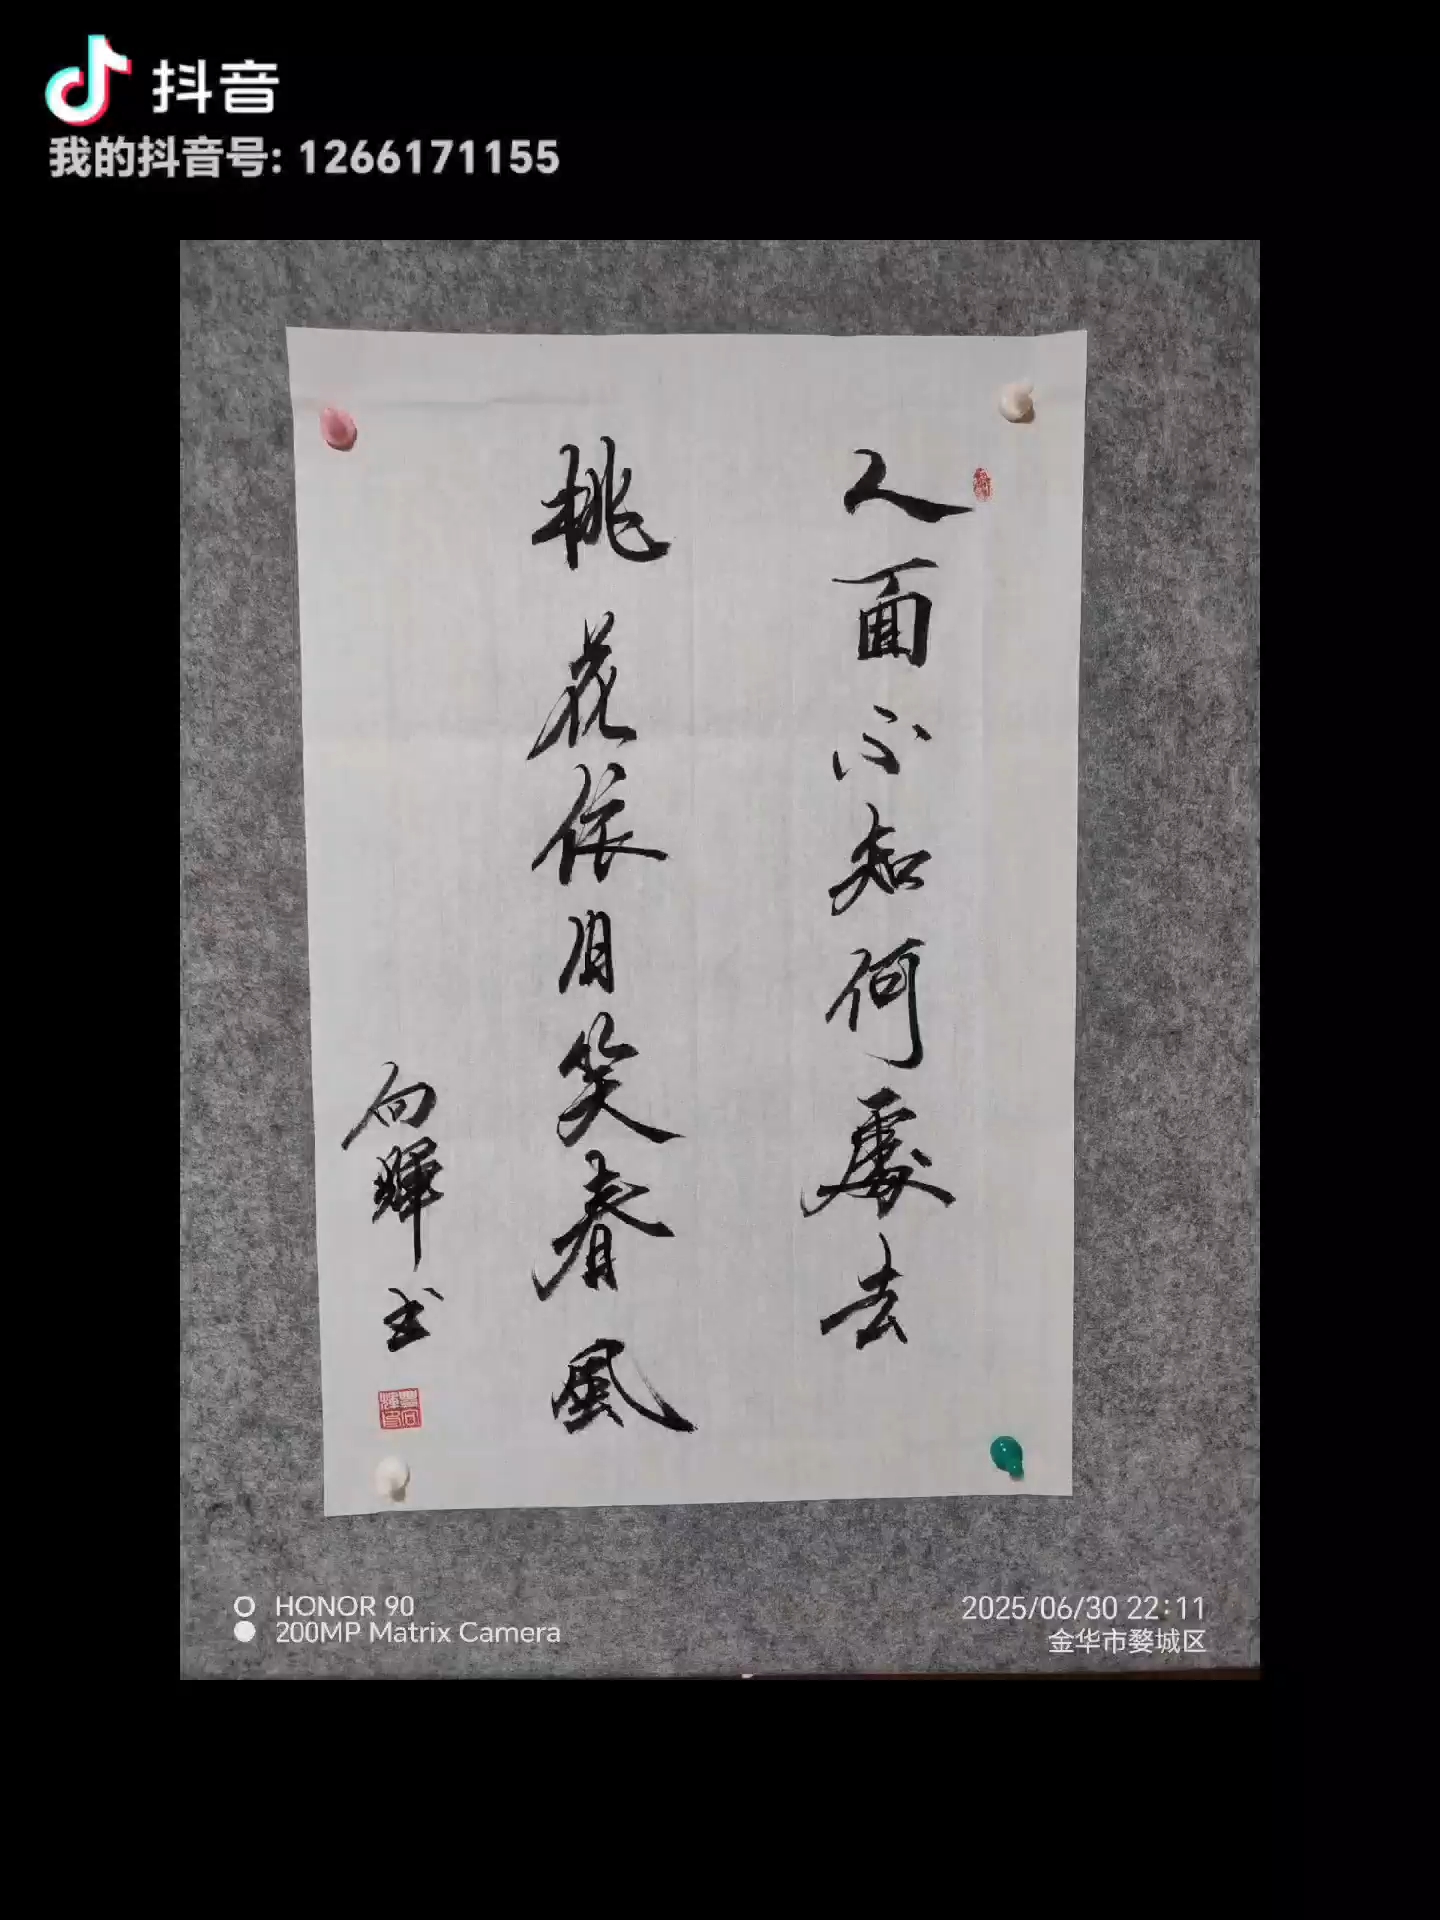 抖音
我的抖音号: 1266171155
人面不知何處去
桃花依旧笑春風
向暉书
HONOR 90
200MP Matrix Camera
2025/06/30 22:11
金华市婺城区